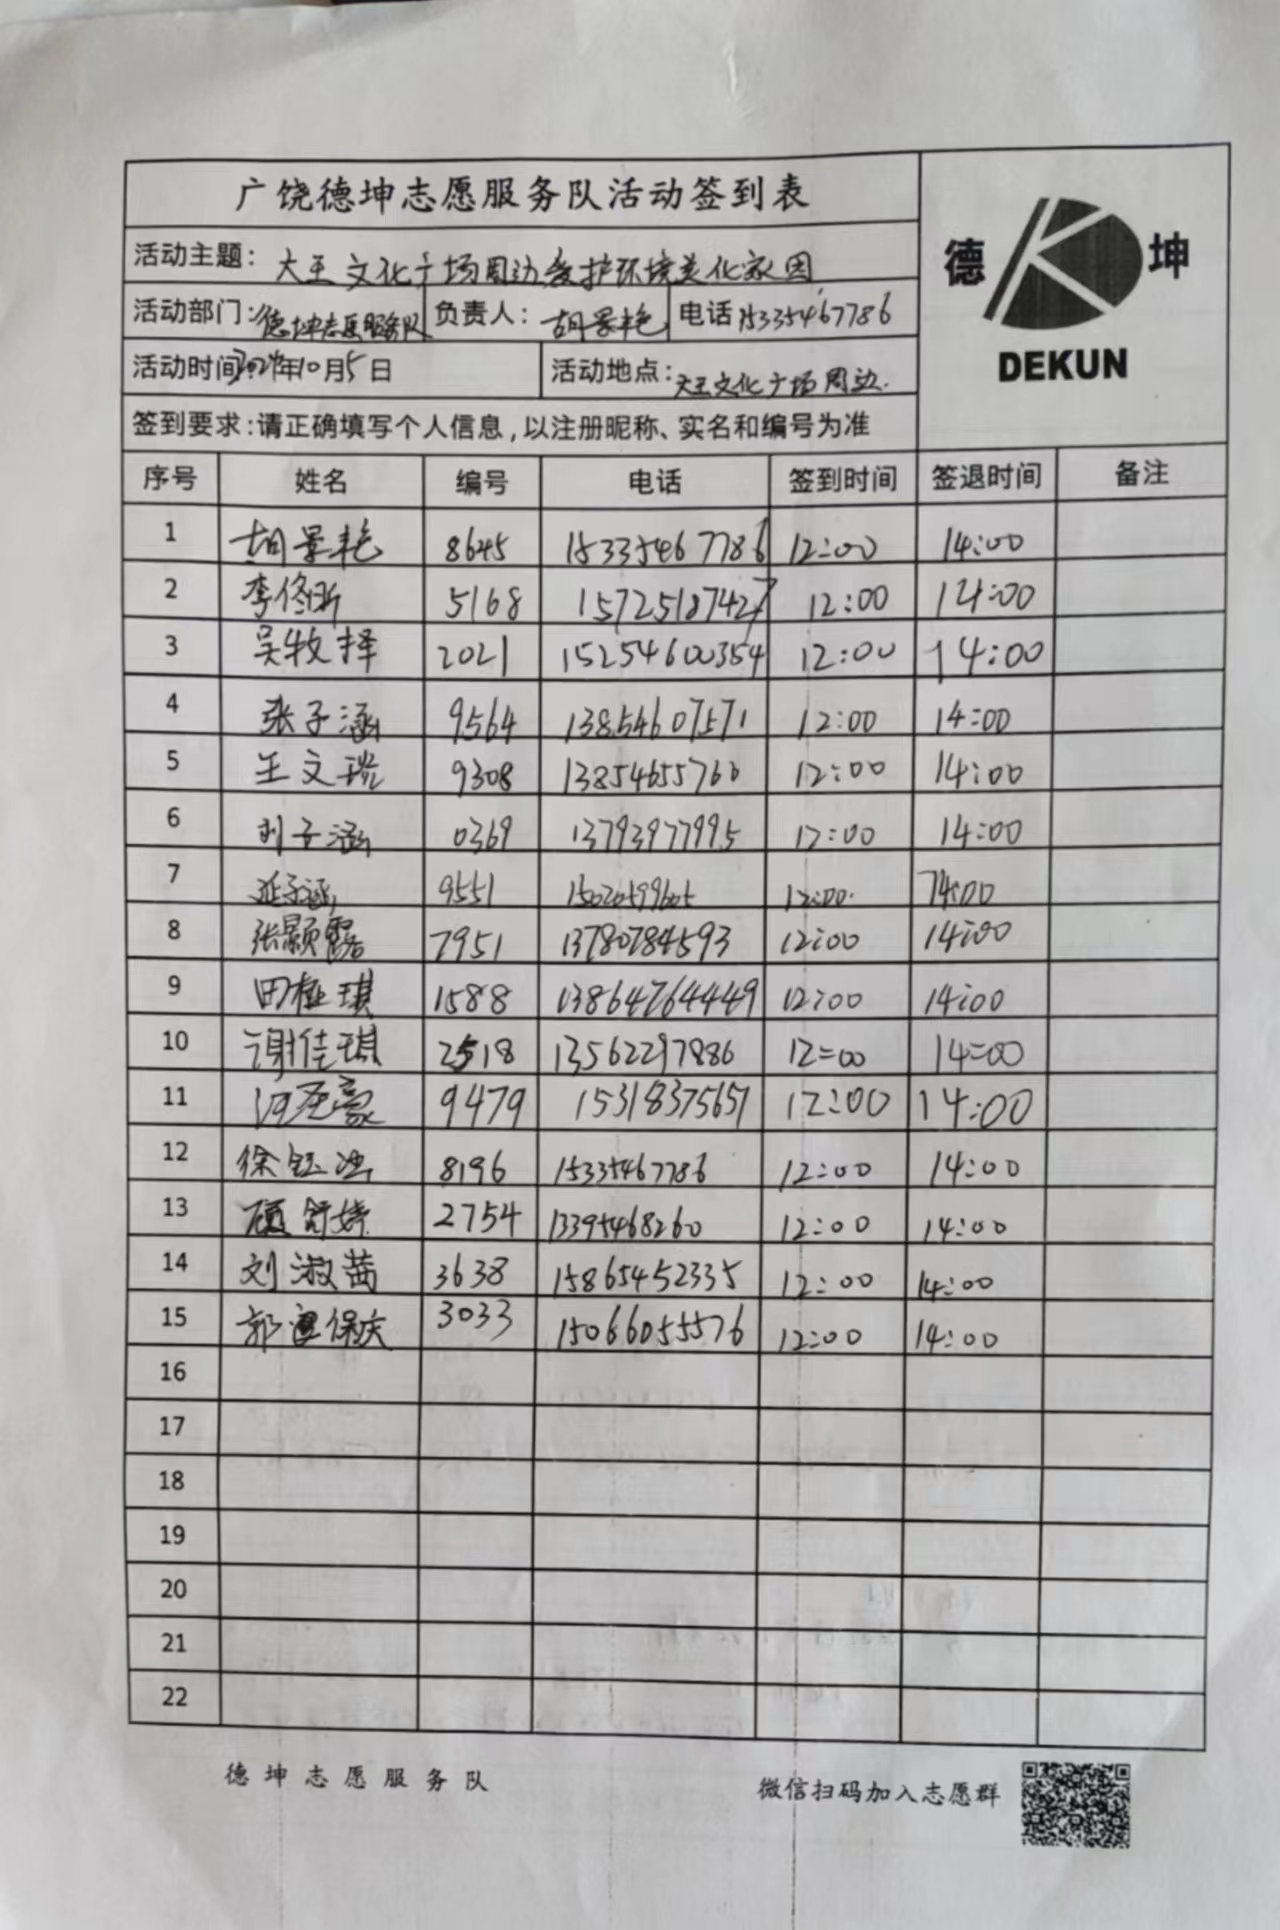 广饶德坤志愿服务队活动签到表
德 坤
DEKUN
活动主题: 大王文化广场周边爱护环境美化家园
活动部门: 德坤志愿服务队 负责人: 胡景艳 电话 15335467786
活动时间: 2024年10月5日 活动地点: 大王文化广场周边.
签到要求:请正确填写个人信息,以注册昵称、实名和编号为准
序号 姓名 编号 电话 签到时间 签退时间 备注
1 胡景艳 8645 15335467786 12:00 14:00
2 李佟昕 5168 15725187427 12:00 14:00
3 吴牧择 2021 15254600354 12:00 14:00
4 张子涵 9564 13854607571 12:00 14:00
5 王文瑞 9308 13854655766 12:00 14:00
6 刘子涵 0369 13793977995 12:00 14:00
7 延子涵 9551 15020599605 12:00 14:00
8 张颢露 7951 13780784593 12:00 14:00
9 田桠琪 1588 13864764449 12:00 14:00
10 谢佳琪 2518 13562297886 12:00 14:00
11 9479 15318375657 12:00 14:00
12 徐钰 8196 15335467786 12:00 14:00
13 顾舒婷 2754 13395468260 12:00 14:00
14 刘淑茜 3638 15865452335 12:00 14:00
15 郭 保庆 3033 15066055576 12:00 14:00
16
17
18
19
20
21
22
德坤志愿服务队 微信扫码加入志愿群